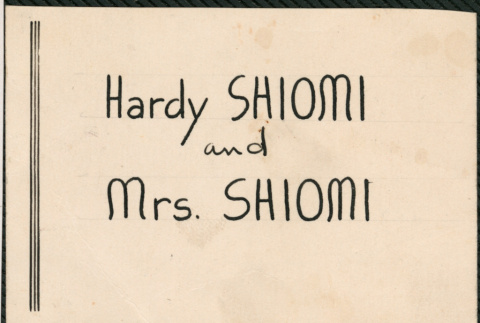 Hardy SHIOMI
and
Mrs. SHIOMI